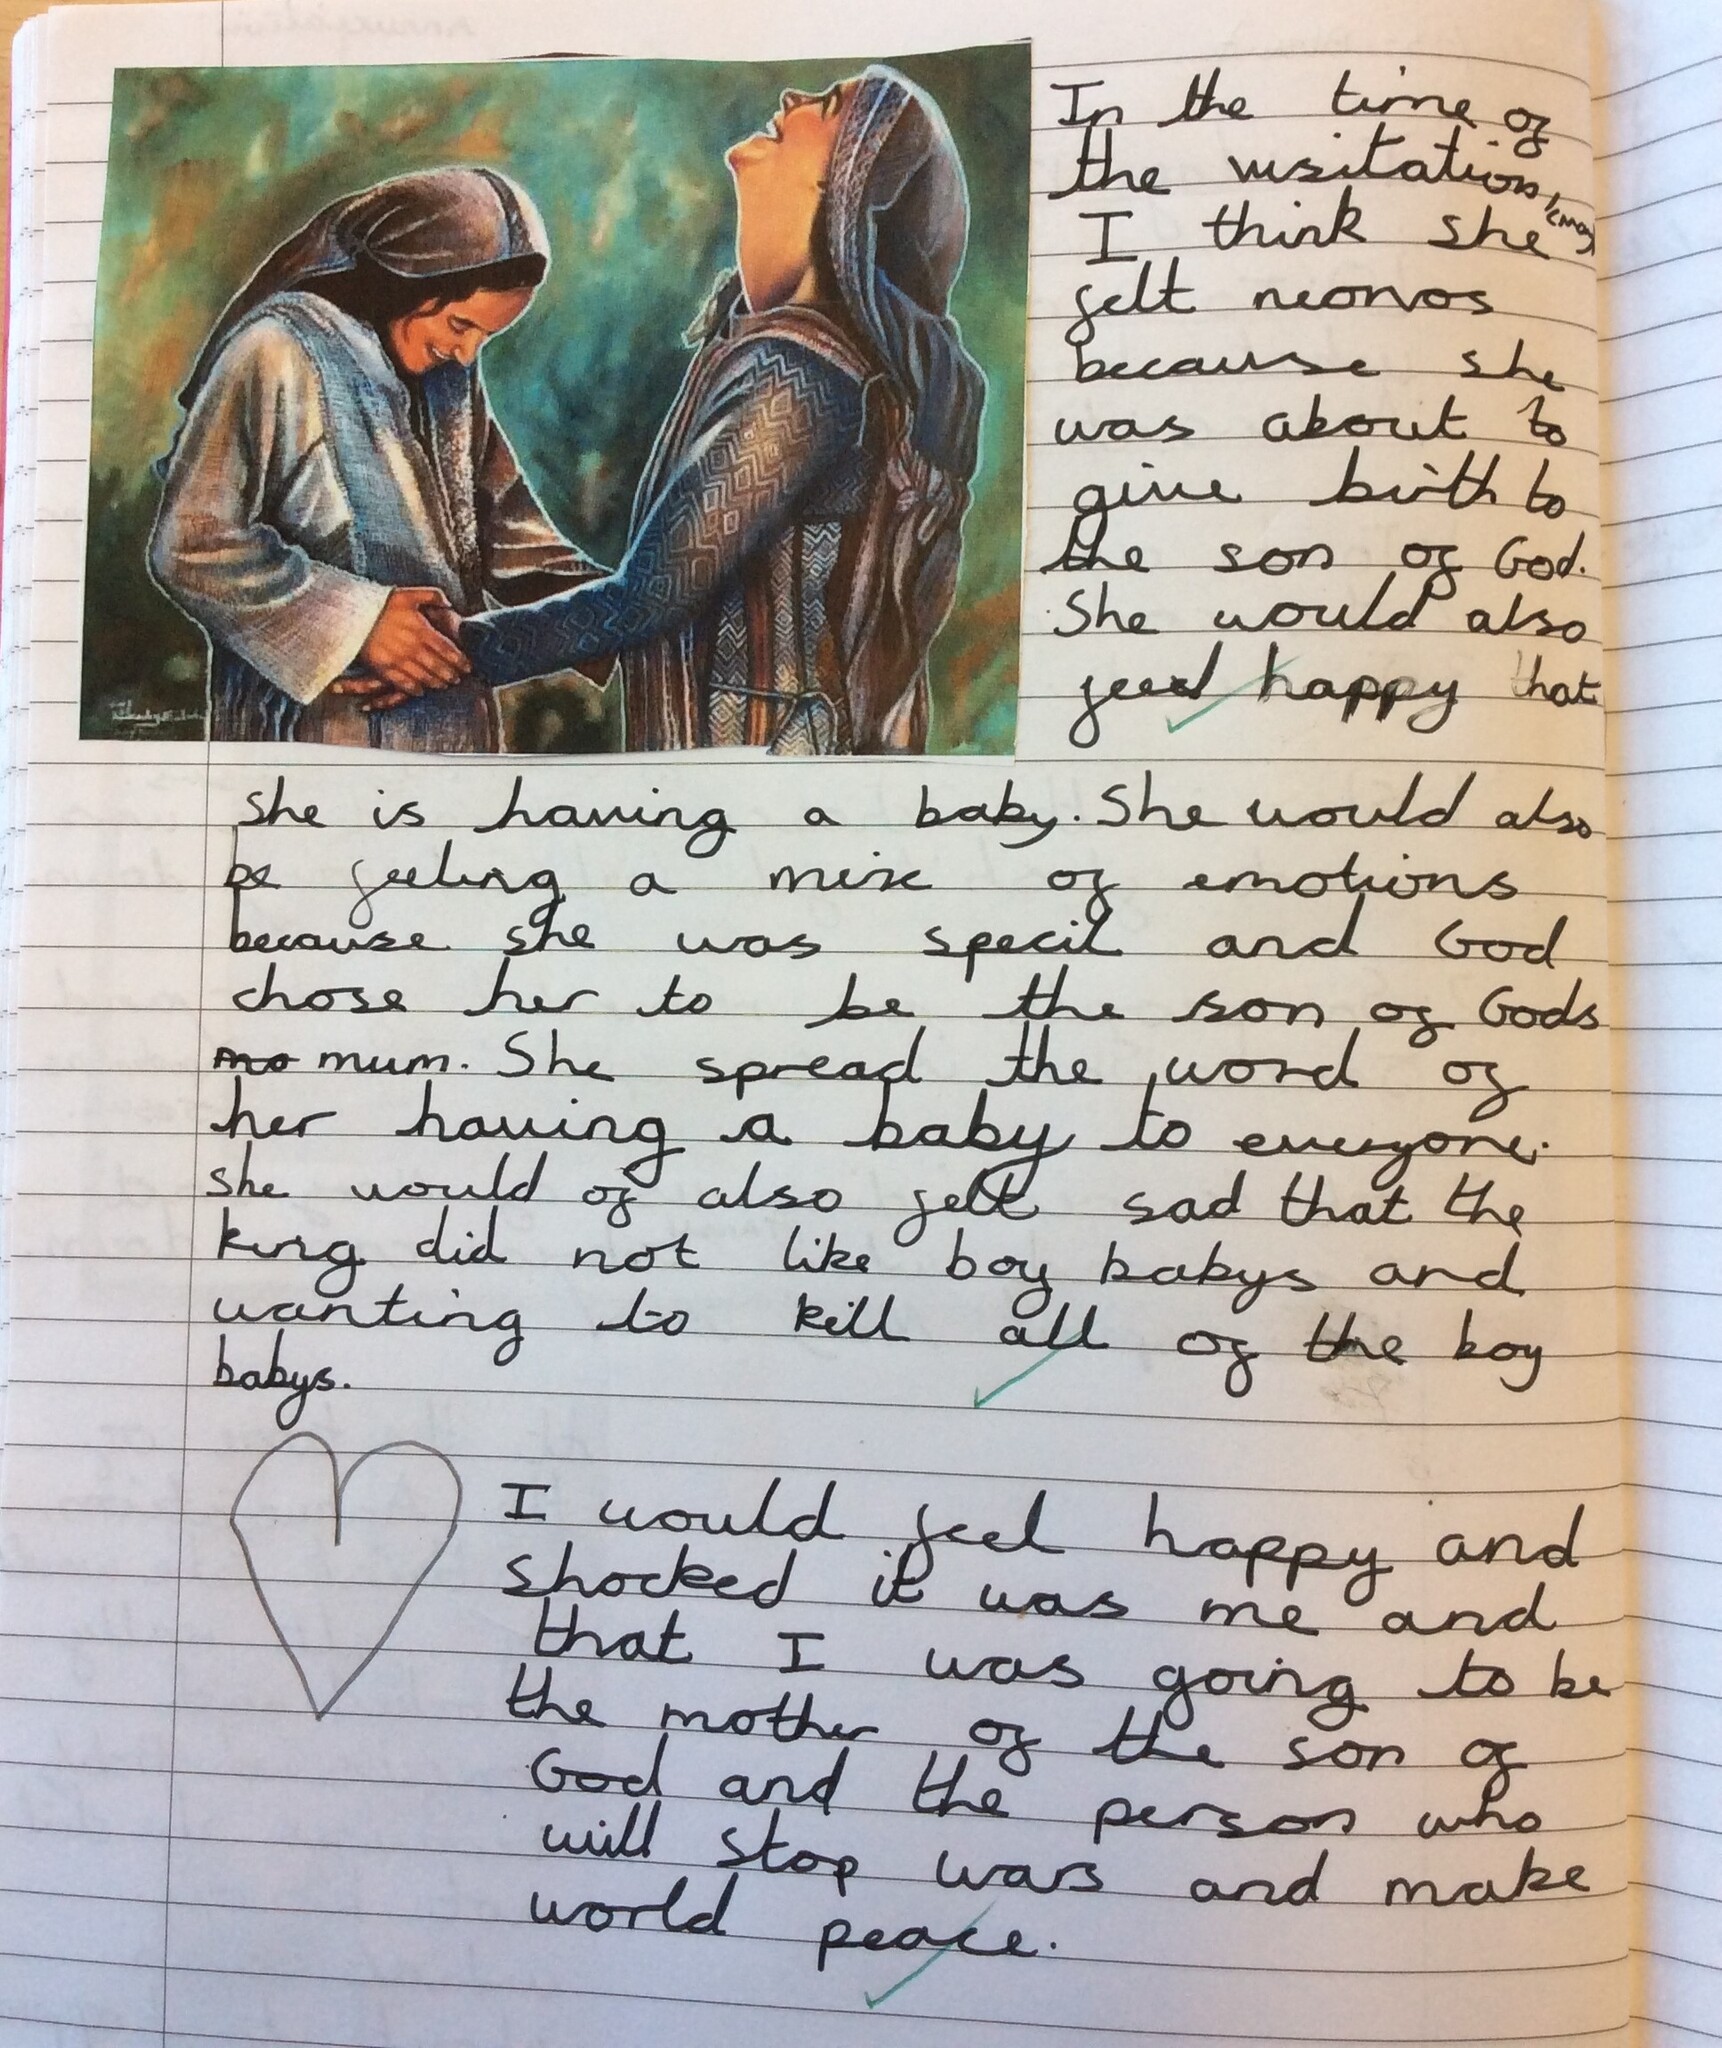 In the time of
the visitation, (mary)
I think she
felt neorvos
because she
was about to
give birth to
the son of God.
She would also
feel happy that
she is having a baby. She would also
be feeling a mix of emotions
because she was specil and God
chose her to be the son of Gods
mo mum. She spread the word of
her having a baby to everyone.
she would of also felt sad that the
king did not like boy babys and
wanting to kill all of the boy
babys.
I would feel happy and
shocked it was me and
that I was going to be
the mother of the son of
God and the person who
will stop wars and make
world peace.